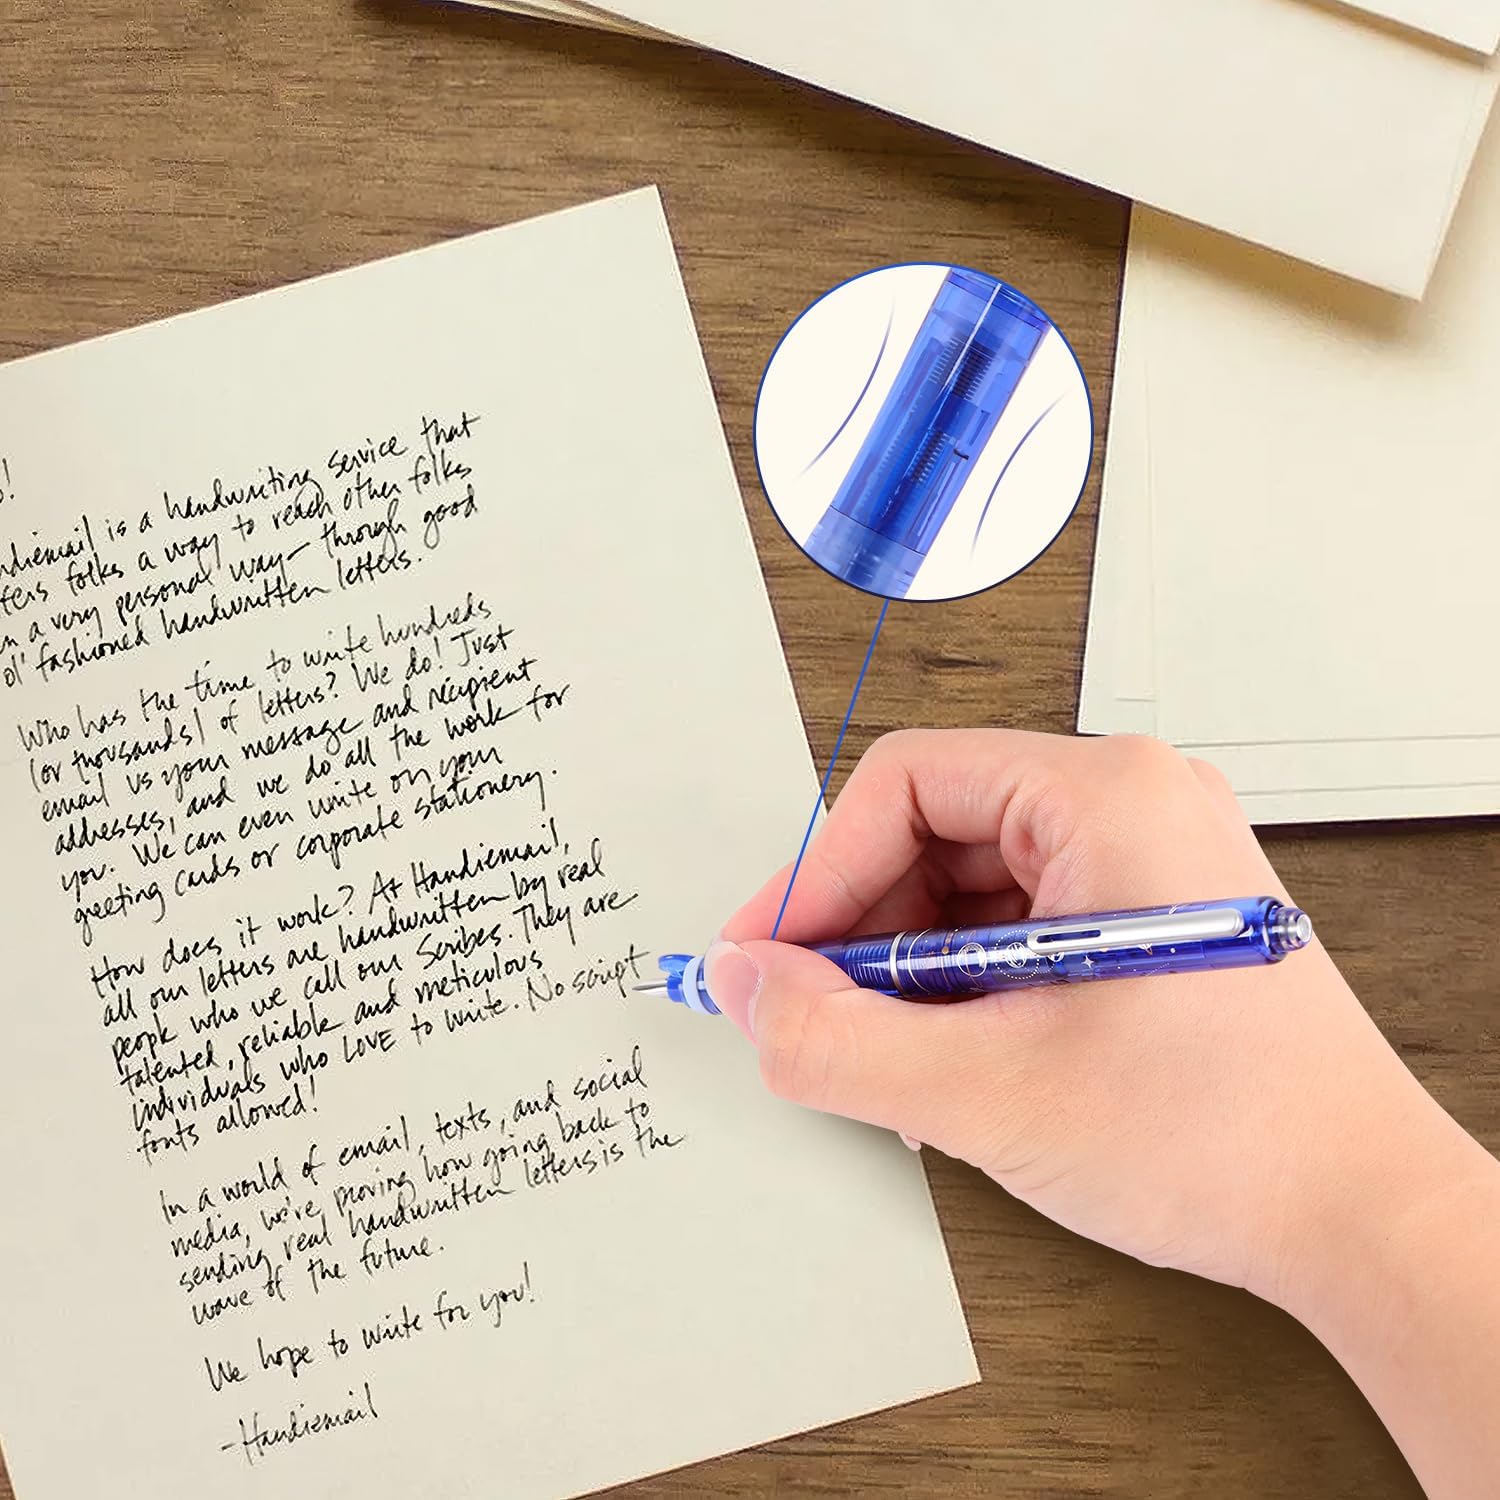 is a handwriting service that
folks a way to reach other folks
a very personal way— through good
ol' fashioned handwritten letters.
Who has the time to write hundreds
(or thousands) of letters? We do! Just
email us your message and recipient
addresses, and we do all the work for
you. We can even write on your
greeting cards or corporate stationery.
How does it work? At Handiemail,
all our letters are handwritten by real
people who we call our Scribes. They are
talented, reliable and meticulous
individuals who LOVE to write. No script
fonts allowed!
In a world of email, texts, and social
media, we're proving how going back to
sending real handwritten letters is the
wave of the future.
We hope to write for you!
-Handiemail